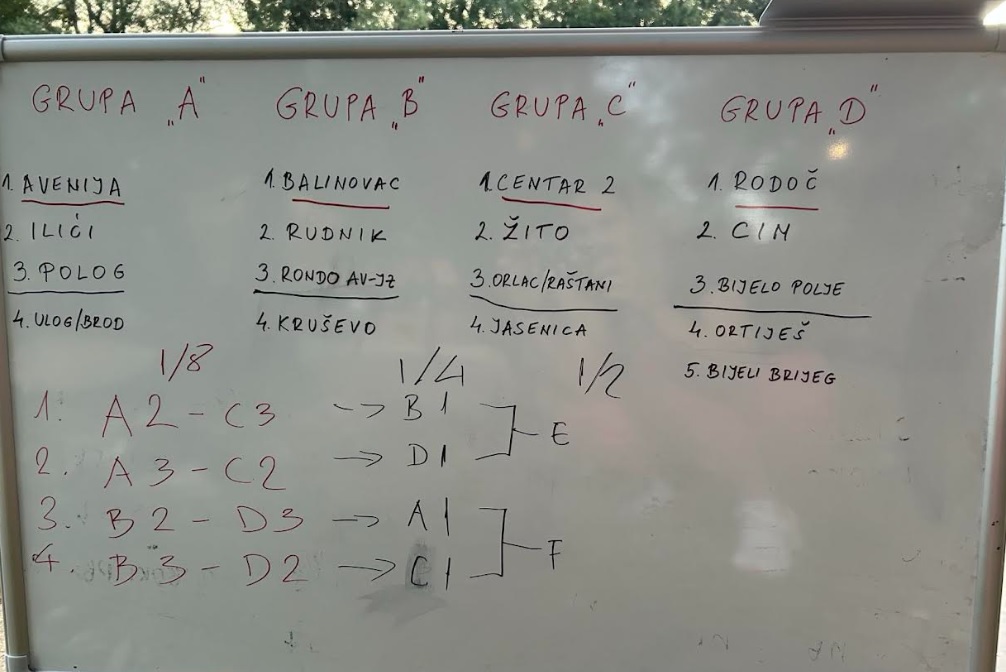 GRUPA „A“ GRUPA „B“ GRUPA „C“ GRUPA „D“
1. AVENIJA 1. BALINOVAC 1. CENTAR 2 1. RODOČ
2. ILIĆI 2. RUDNIK 2. ŽITO 2. CIM
3. POLOG 3. RONDO AV-JZ 3. ORLAC/RAŠTANI 3. BIJELO POLJE
4. ULOG/BROD 4. KRUŠEVO 4. JASENICA 4. ORTIJEŠ
5. BIJELI BRIJEG
1/8 1/4 1/2
1. A2 - C3 -> B1
2. A3 - C2 -> D1
E
3. B2 - D3 -> A1
4. B3 - D2 -> C1
F